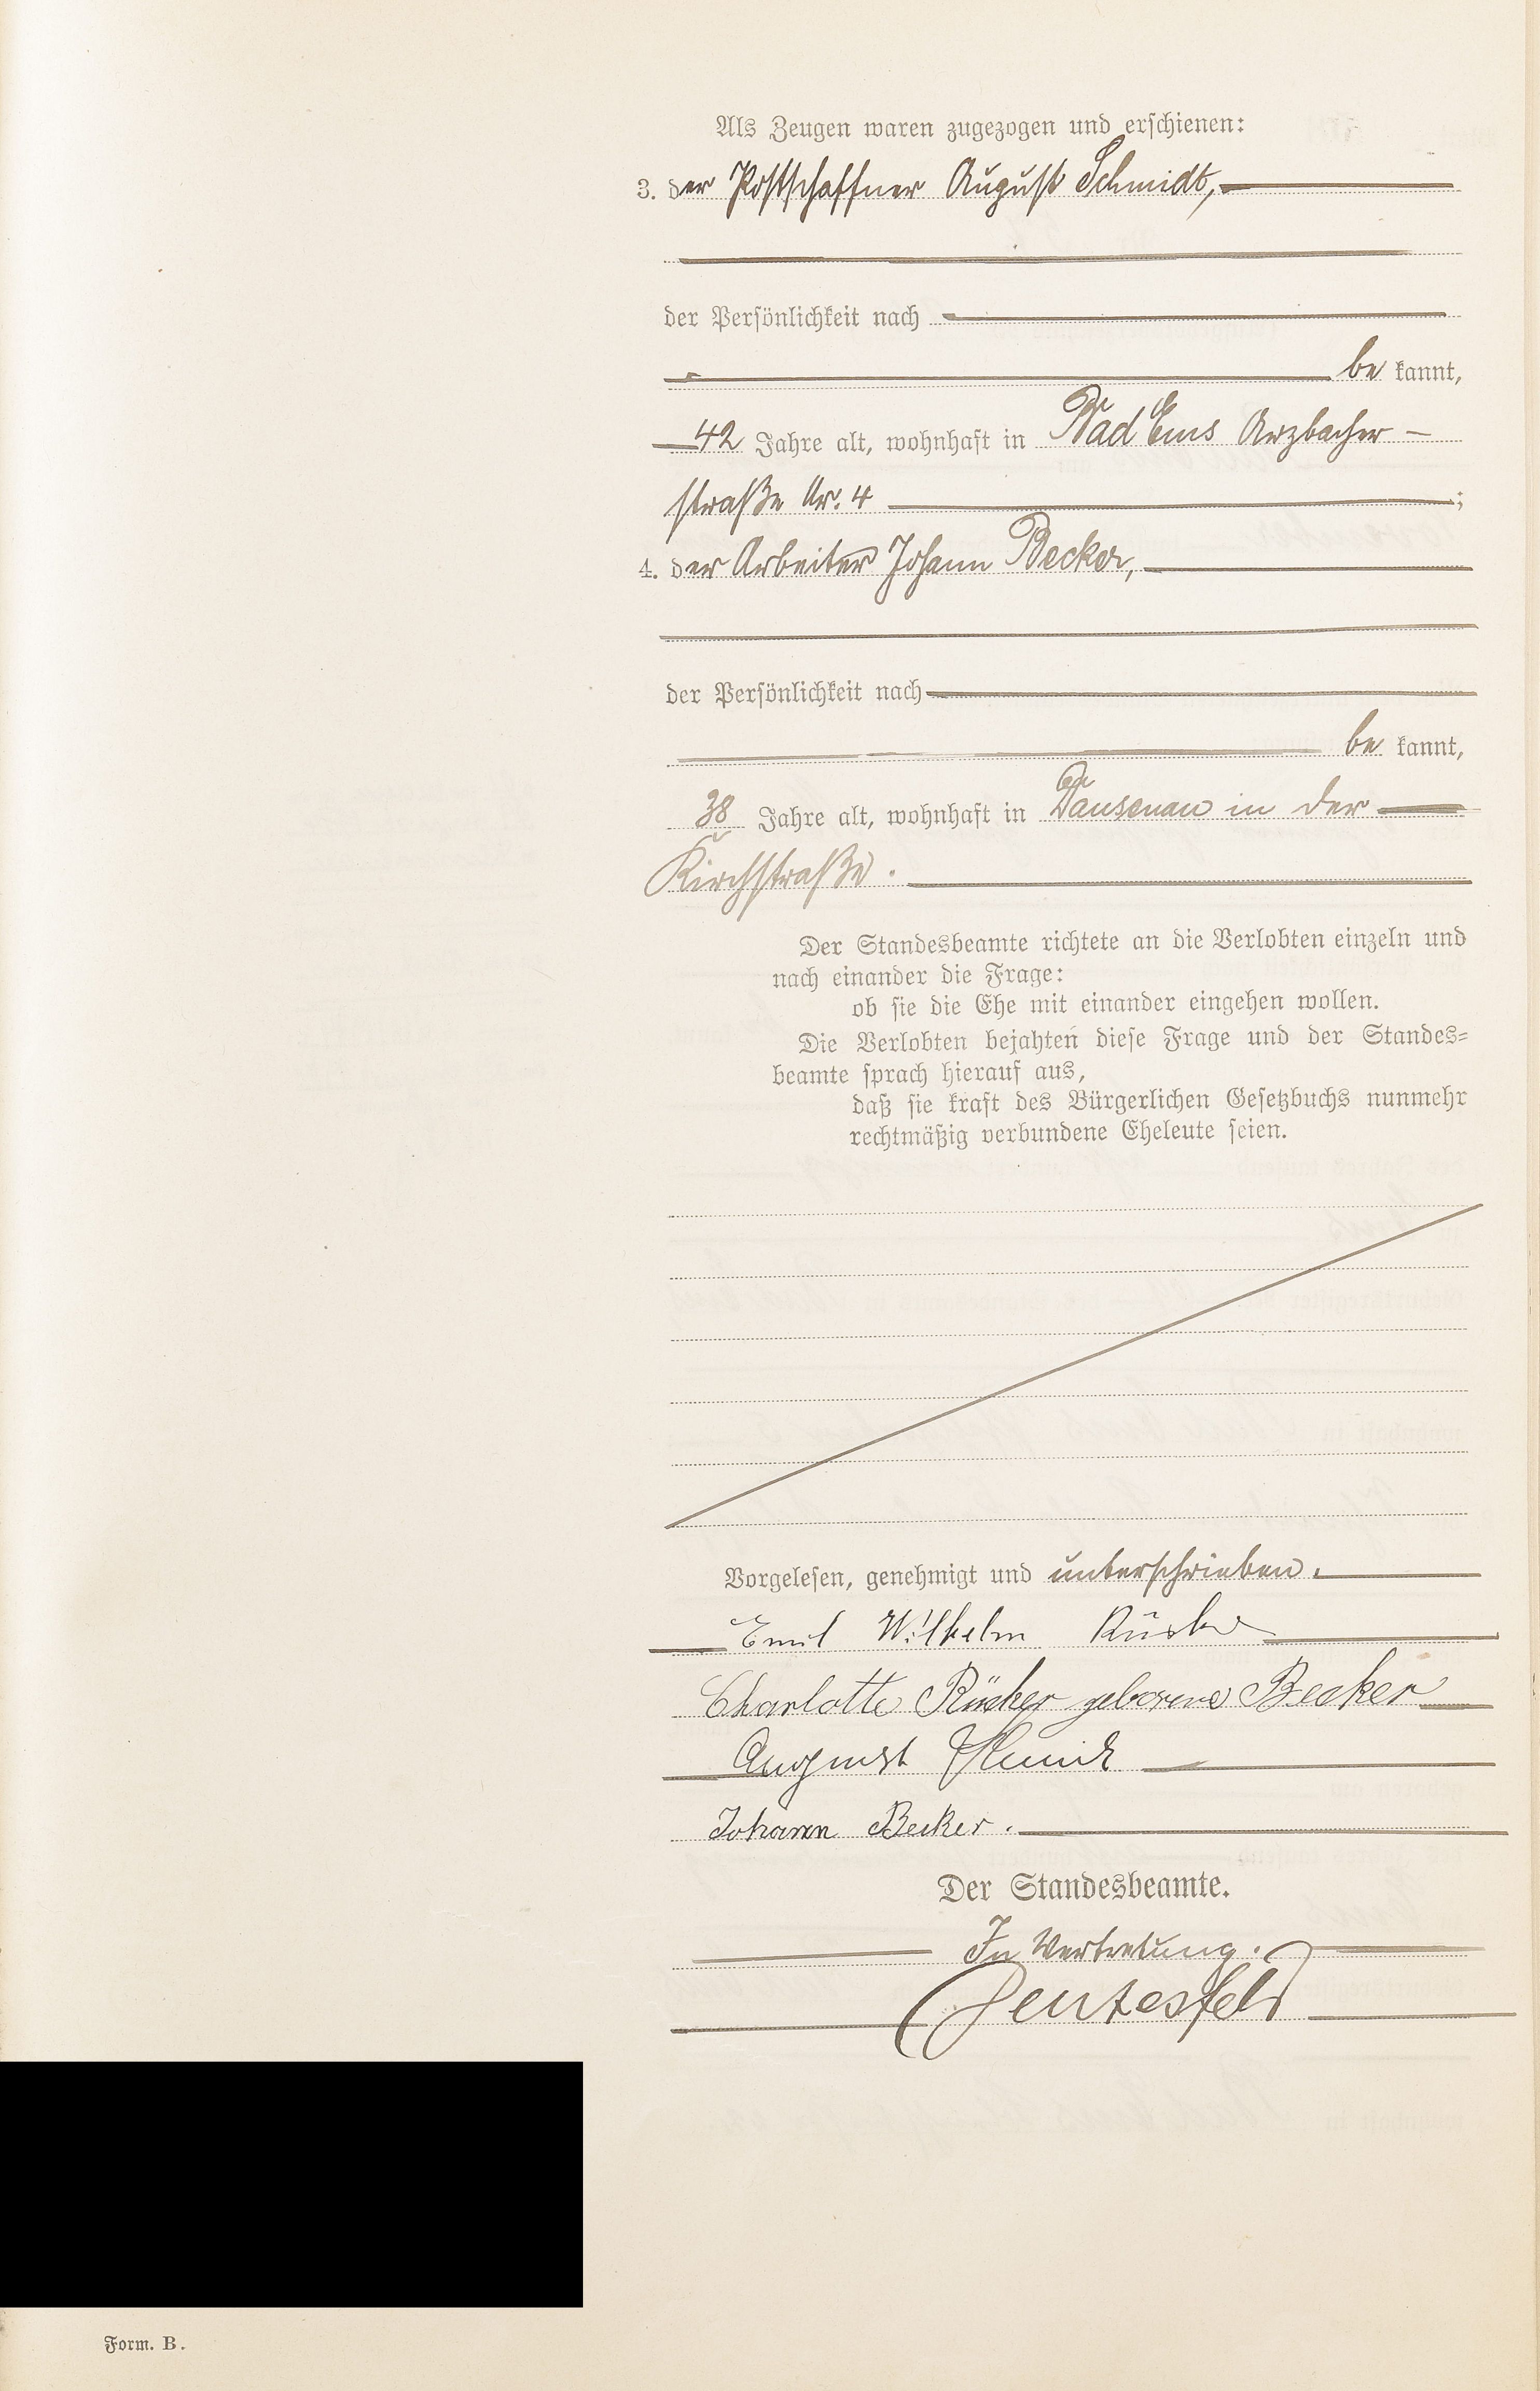 Als Zeugen waren zugezogen und erschienen:
3. der Postschaffner August Schmidt,
der Persönlichkeit nach
be kannt,
42 Jahre alt, wohnhaft in Bad Ems Arzbacher-
straße Nr. 4 ;
4. der Arbeiter Johann Becker,
der Persönlichkeit nach
be kannt,
38 Jahre alt, wohnhaft in Dausenau in der
Kirchstraße.
Der Standesbeamte richtete an die Verlobten einzeln und
nach einander die Frage:
ob sie die Ehe mit einander eingehen wollen.
Die Verlobten bejahten diese Frage und der Standes=
beamte sprach hierauf aus,
daß sie kraft des Bürgerlichen Gesetzbuchs nunmehr
rechtmäßig verbundene Eheleute seien.
Vorgelesen, genehmigt und unterschrieben.
Emil Wilhelm
Charlotte Rücker geborene Becker
August Schmidt
Johann Becker.
Der Standesbeamte.
In Vertretung.
Form. B.